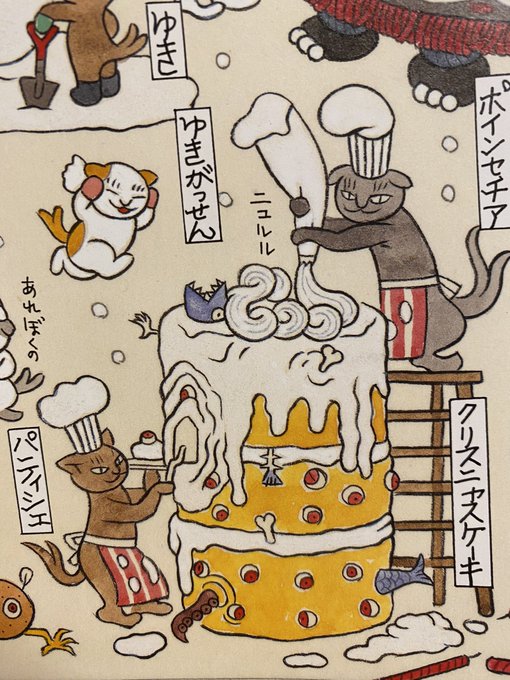 ゆき
ポインセチア
ゆきがっせん
ニュルル
あれぼくの
クリスニャスケーキ
パティシエ